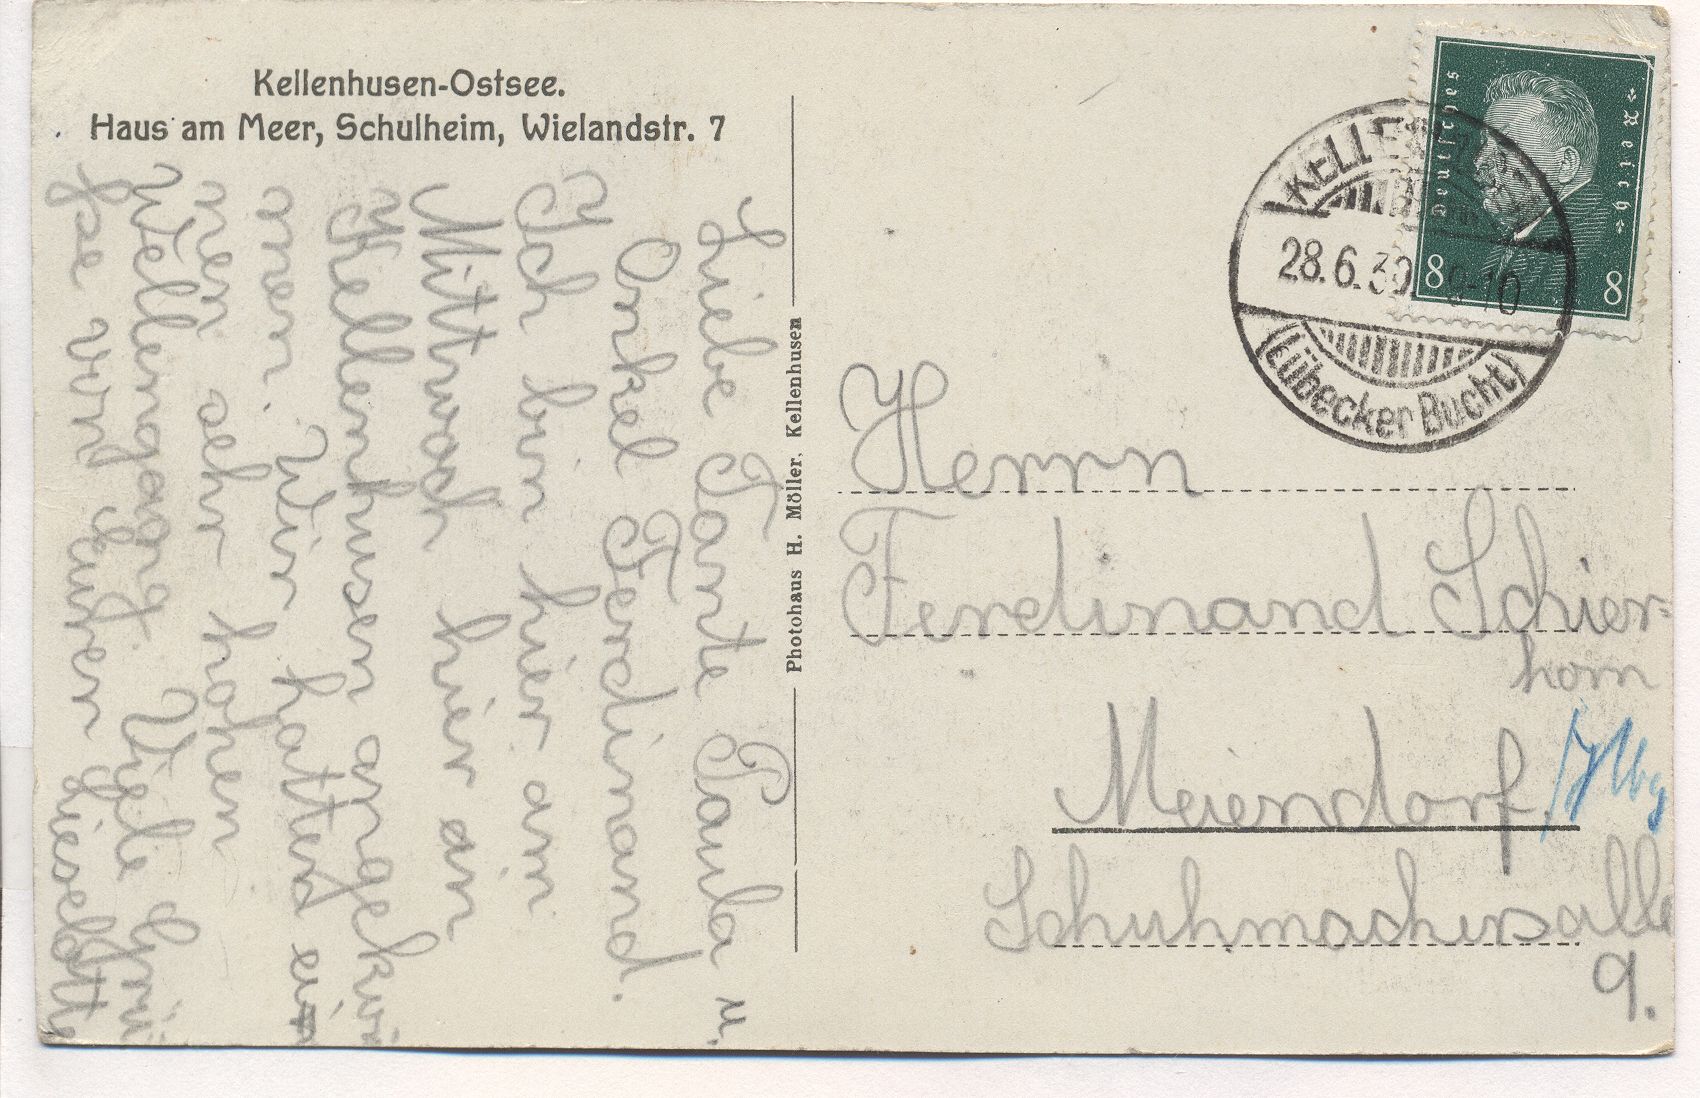 Kellenhusen-Ostsee.
Haus am Meer, Schulheim, Wielandstr. 7
Liebe Tante Paula u.
Onkel Ferdinand.
Ich bin hier am
Mittwoch hier an
Kellenhusen angekom
men. Wir hatten ein
nen sehr hohen
Wellengang. Viele Grü
ße von Eurer Lieselotte
Photohaus H. Möller, Kellenhusen
Deutsches Reich
8 8
KELLENHUSEN
28.6.30. 9-10
(Lübecker Bucht)
Herrn
Ferdinand Schier=
horn
Meiendorf
/Hbg
Schuhmachersalle
9.